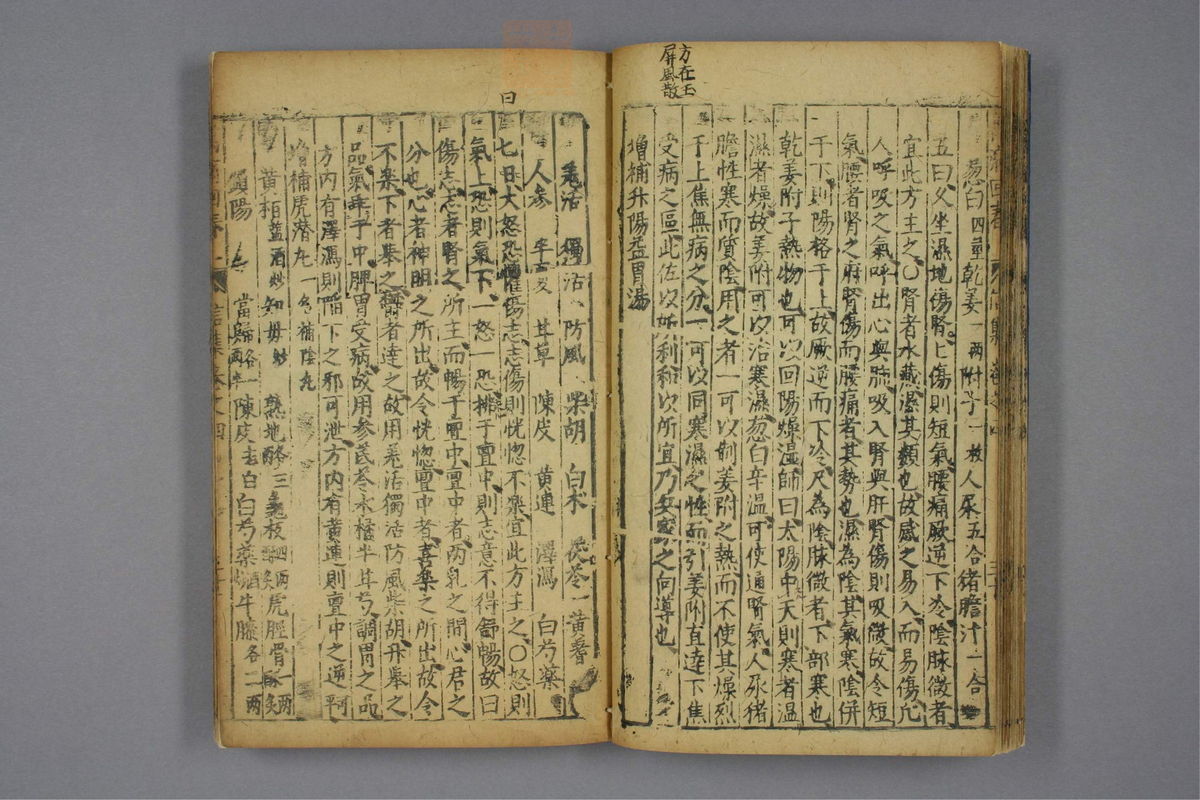 方在玉
屏風散
葱白四莖乾姜一兩附子一枚人尿五合猪膽汁一合
五曰久坐濕地傷腎腎傷則短氣腰痛厥逆下冷陰脉微者
宜此方主之〇腎者水藏濕其類也故感之易入而易傷凡
人呼吸之氣呼出心與肺吸入腎與肝腎傷則吸微故令短
氣腰者腎之府腎傷而腰痛者其勢也濕為陰其氣寒陰併
于下則陽格于上故厥逆而下冷尺為陰脉微者下部寒也
乾姜附子熱物也可以回陽燥溫師曰太陽中天則寒者溫
濕者燥故姜附可以治寒濕葱白辛溫可使通腎氣人尿猪
膽性寒而質陰用之者一可以制姜附之熱而不使其燥烈
于上焦無病之分一可以同寒濕之性而引姜附直達下焦
受病之區此佐以所利和以所宜乃交竅之向導也
增補升陽益胃湯
羌活 獨活 防風 柴胡 白朮 茯苓 黃芪
人參 半夏 甘草 陳皮 黃連 澤瀉 白芍藥
曰
七曰大怒恐懼傷志志傷則恍惚不樂宜此方主之〇怒則
氣上恐則氣下一怒一恐排于亶中則志意不得舒暢故曰
傷志志者腎之所主而暢于亶中亶中者兩乳之間心君之
分也心者神明之所出故令恍惚亶中者喜樂之所出故令
不樂下者舉之鬱者達之故用羌活獨活防風柴胡升舉之
品氣乖于中脾胃受病故用參芪苓朮橘半甘芍調胃之品
方內有澤瀉則陷下之邪可泄方內有黃連則亶中之逆可
增補虎潛丸一名補陰丸
黃栢鹽酒炒知母炒 熟地各三龜板四兩酥炙虎脛骨一兩酥炙
鎖陽 當歸各一兩半陳皮去白白芍藥酒炒牛膝各二兩